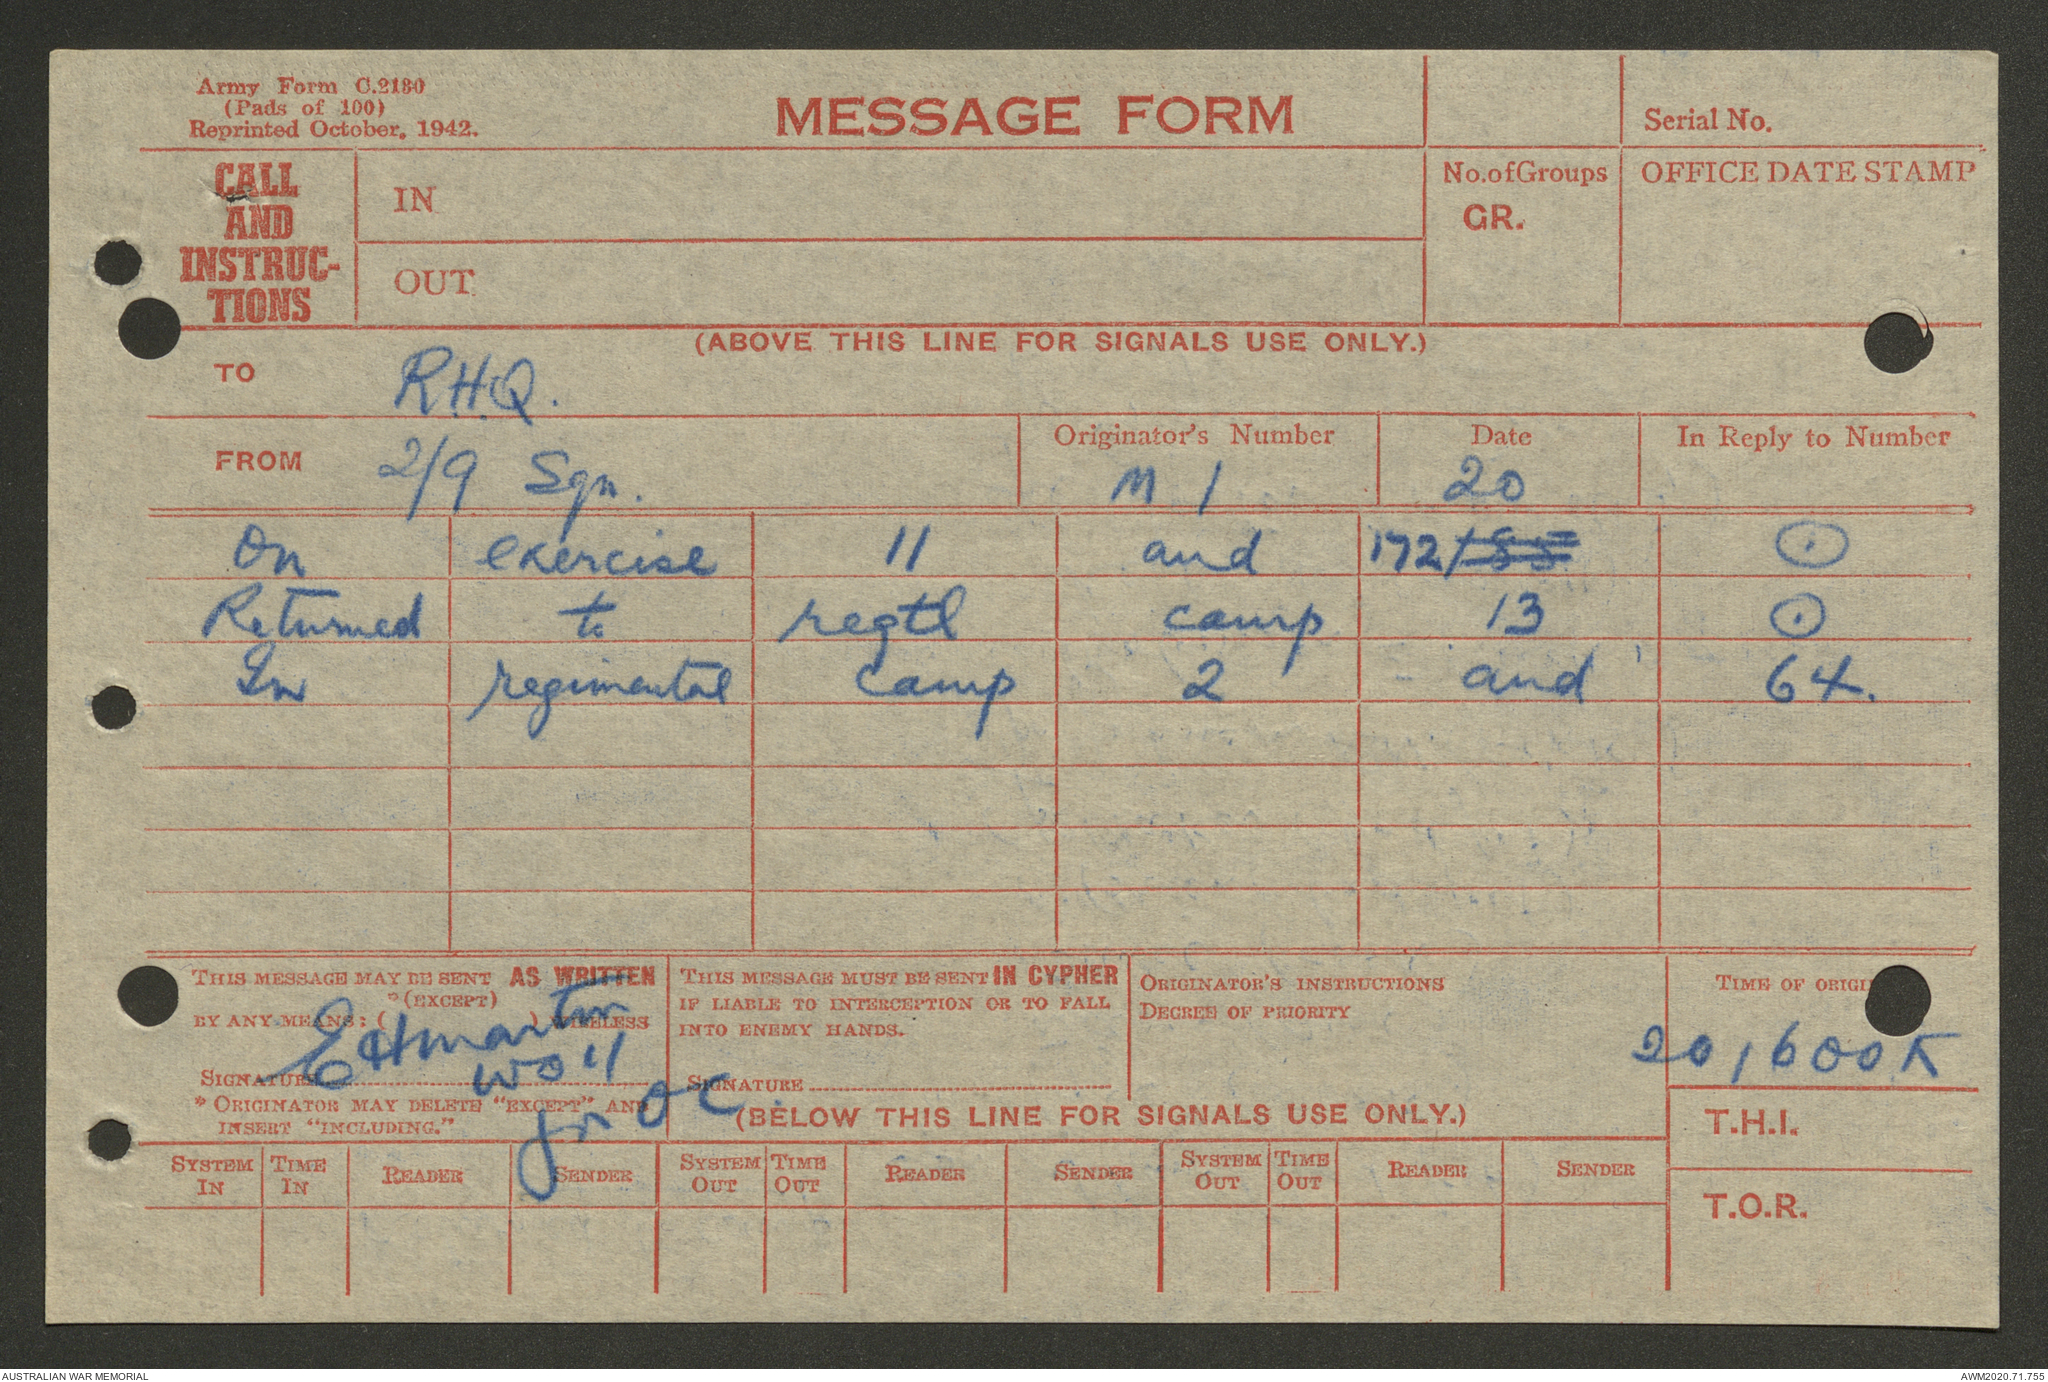 Army Form C.2130
(Pads of 100)
Reprinted October, 1942.
MESSAGE FORM
Serial No.
CALL
AND
INSTRUC-
TIONS
IN
OUT
No. of Groups
GR.
OFFICE DATE STAMP
(ABOVE THIS LINE FOR SIGNALS USE ONLY.)
TO R.H.Q.
FROM 2/9 Sqn.
Originator's Number
M 1
Date
20
In Reply to Number
On exercise 11 and 172/ ⊙
Returned to regtl camp 13 ⊙
In regimental camp 2 and 64.
THIS MESSAGE MAY BE SENT AS WRITTEN
*(EXCEPT)
BY ANY MEANS: ( ) WIRELESS
SIGNATURE EHMartin
WO II
for OC.
* ORIGINATOR MAY DELETE "EXCEPT" AND
INSERT "INCLUDING."
THIS MESSAGE MUST BE SENT IN CYPHER
IF LIABLE TO INTERCEPTION OR TO FALL
INTO ENEMY HANDS.
SIGNATURE
ORIGINATOR'S INSTRUCTIONS
DEGREE OF PRIORITY
TIME OF ORIGI
201600K
(BELOW THIS LINE FOR SIGNALS USE ONLY.)
T.H.I.
T.O.R.
SYSTEM IN TIME IN READER SENDER SYSTEM OUT TIME OUT READER SENDER SYSTEM OUT TIME OUT READER SENDER
AUSTRALIAN WAR MEMORIAL
AWM2020.71.755